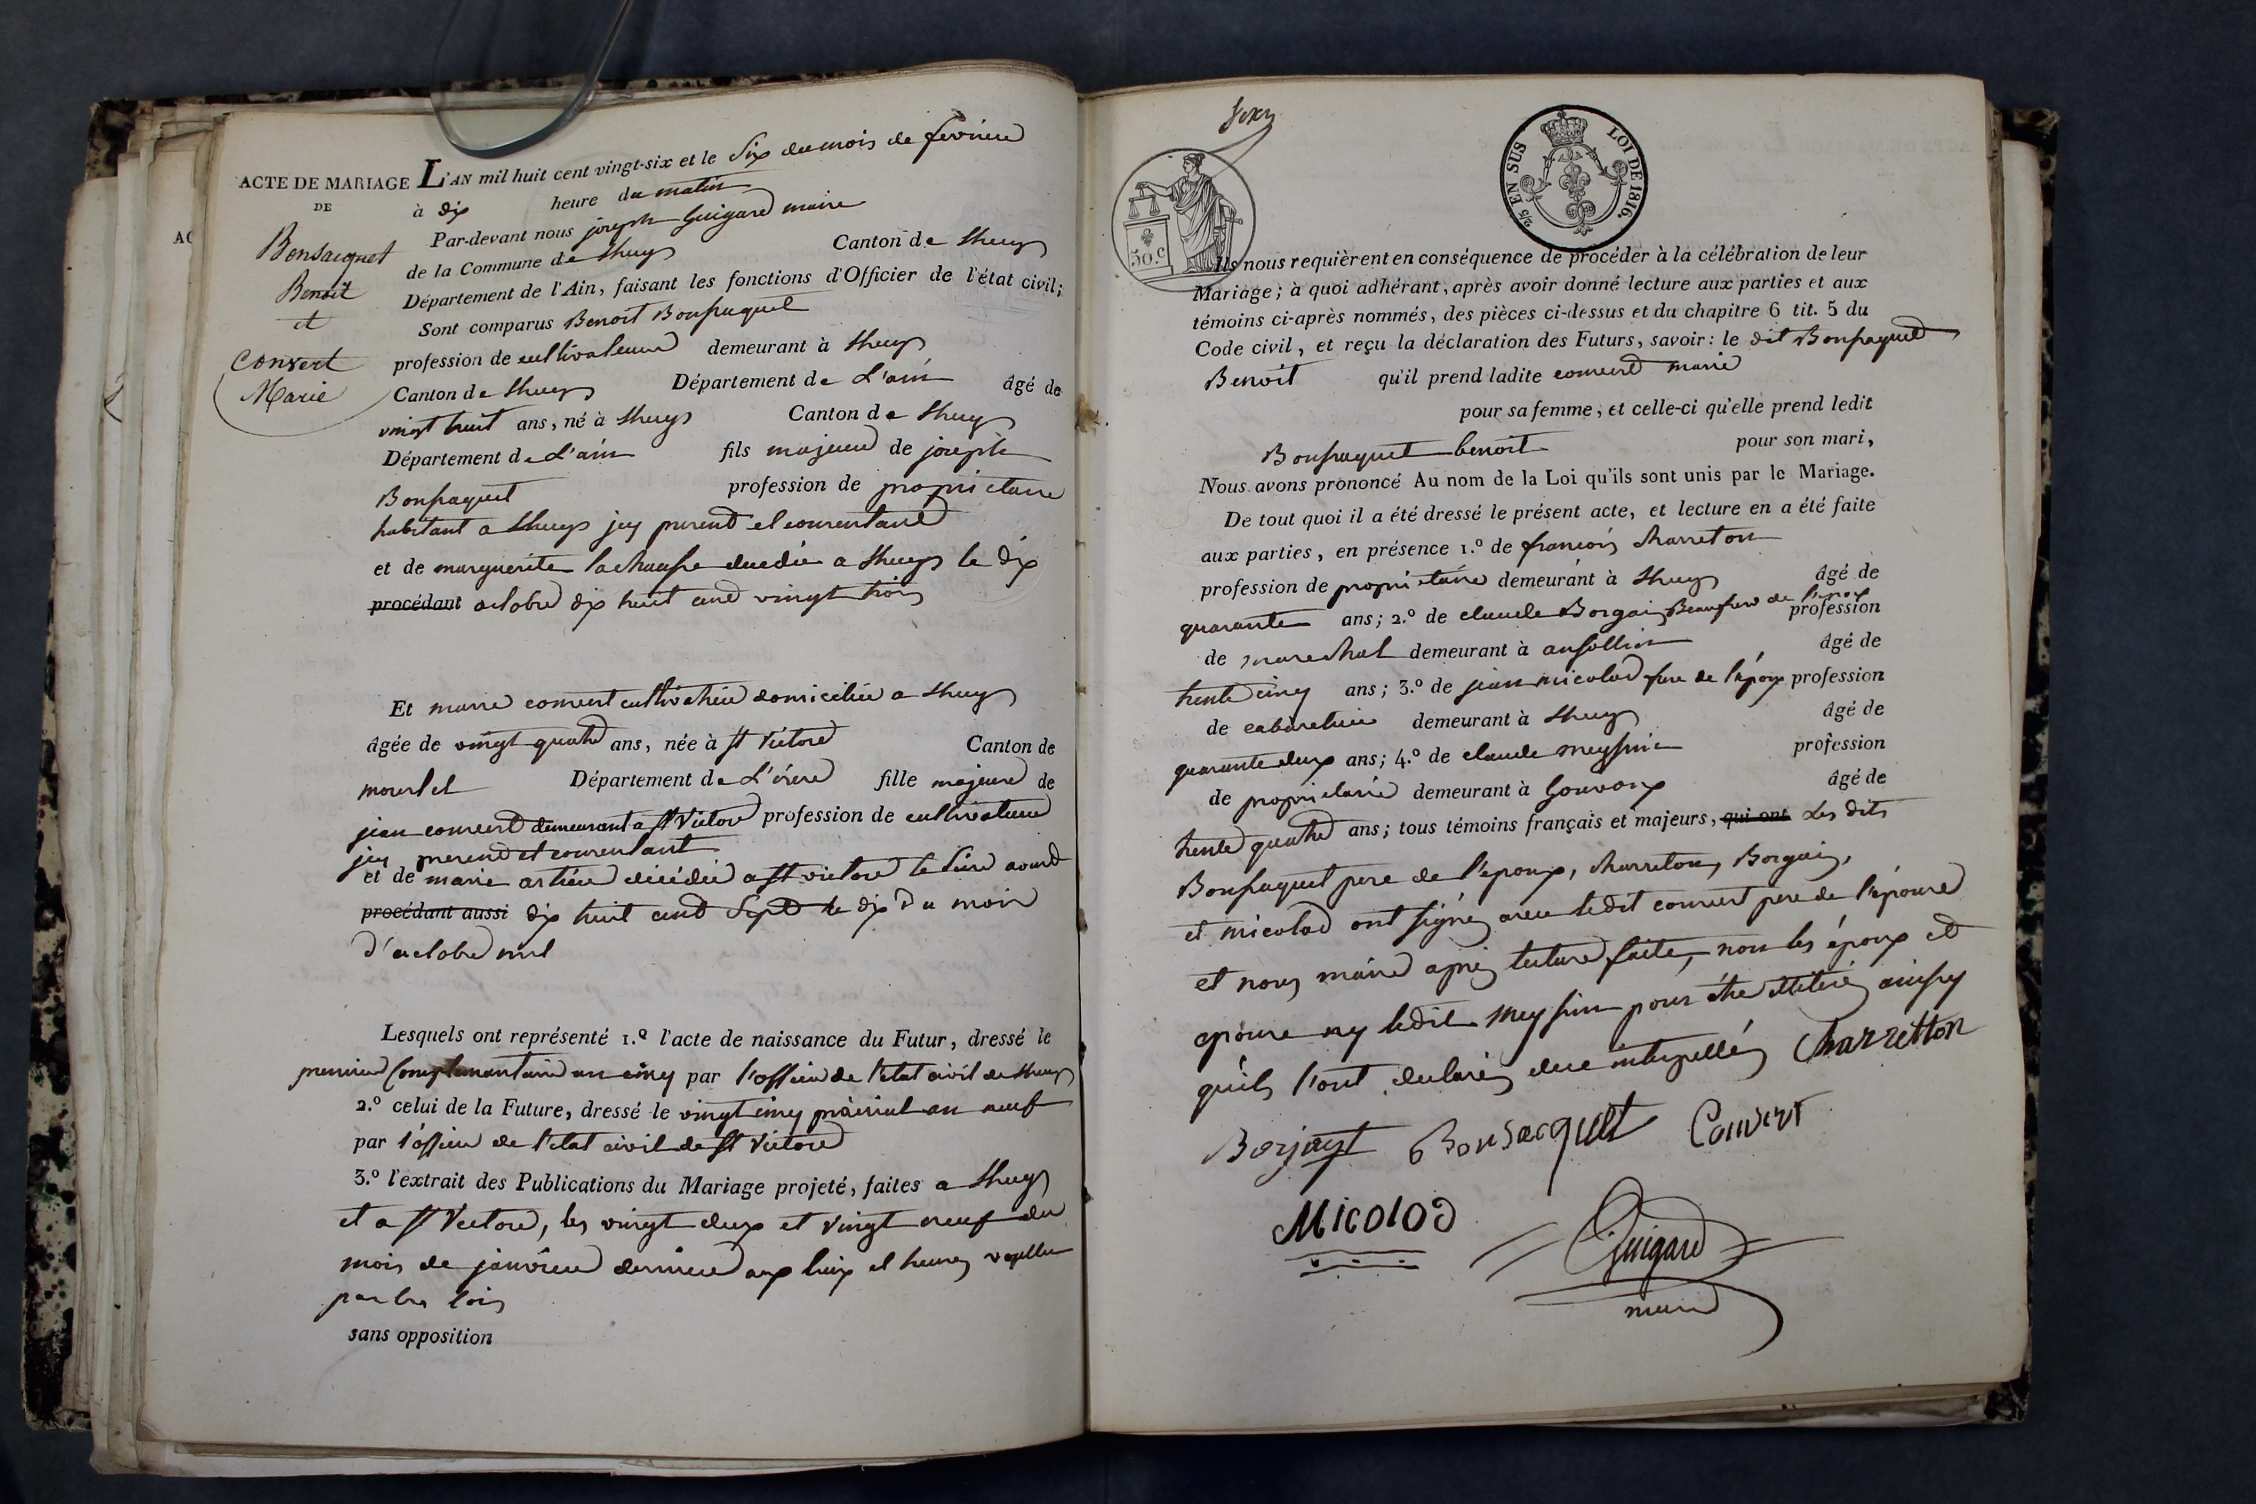 ACTE DE MARIAGE L'AN mil huit cent vingt-six et le Six du mois de fevrier
DE
à dix heure du matin
Par-devant nous joseph Guigard maire
de la Commune de thuys Canton de thuys
Département de l'Ain, faisant les fonctions d'Officier de l'état civil;
Bonsacquet
Benoit
et
Convert
Marie
Sont comparus Benoit Bonsaquet
profession de cultivateur demeurant à thuys
Canton de thuys Département de L'ain âgé de
vingt huit ans, né à thuys Canton de thuys
Département de L'ain fils majeur de joseph
Bonsaquet profession de proprietaire
habitant a thuys icy present et consentant
et de marguerite lachausse decedée a thuys le dix
procédant octobre dix huit cend vingt trois
Et marie convert cultivatrice domiciliée a thuys
âgée de vingt quatre ans, née à St Victord Canton de
Département de L' fille majeure de
jean convert demeurant a St Victord profession de cultivateur
icy present et consentant
et de marie decédée a St victord le
procédant aussi dix huit cend Sept le dix du mois
d'octobre mil
Lesquels ont représenté 1.º l'acte de naissance du Futur, dressé le
premier an cinq par l'officier de l'etat civil de thuys
2.º celui de la Future, dressé le vingt cinq prairial an neuf
par l'officier de l'etat civil de St Victord
3.º l'extrait des Publications du Mariage projeté, faites a thuys
et a St Victord, les vingt deux et vingt neuf du
mois de janvier dernier aux lieux et heures voullu
par les lois
sans opposition
50.C
2/5 EN SUS LOI DE 1816.
Ils nous requièrent en conséquence de procéder à la célébration de leur
Mariage; à quoi adhérant, après avoir donné lecture aux parties et aux
témoins ci-après nommés, des pièces ci-dessus et du chapitre 6 tit. 5 du
Code civil, et reçu la déclaration des Futurs, savoir: le dit Bonsaquet
Benoit qu'il prend ladite convert marie
pour sa femme, et celle-ci qu'elle prend ledit
Bonsaquet benoit pour son mari,
Nous avons prononcé Au nom de la Loi qu'ils sont unis par le Mariage.
De tout quoi il a été dressé le présent acte, et lecture en a été faite
aux parties, en présence 1.º de francois charreton
profession de proprietaire demeurant à thuys âgé de
quarante ans; 2.º de claude Borgai Beaufrere de l'epoux profession
de marechal demeurant à ansollin âgé de
trente cinq ans; 3.º de jean micolod frere de l'époux profession
de cabaretier demeurant à thuys âgé de
quarante deux ans; 4.º de claude meyssin profession
de proprietaire demeurant à Gouvoux âgé de
trente quatre ans; tous témoins français et majeurs, qui ont Les dits
Bonsaquet pere de l'epoux, charreton, Borgai,
et micolod ont signé avec ledit convert pere de l'épouse
et nous maire apres lecture faite, non les époux et
epouse ny ledit meyssin pour être illitéré ainsy
qu'ils l'ont declarés de ce interpellés Charretton
Borjayt Bonsacquet Convert
Micolod
Guigard
maire